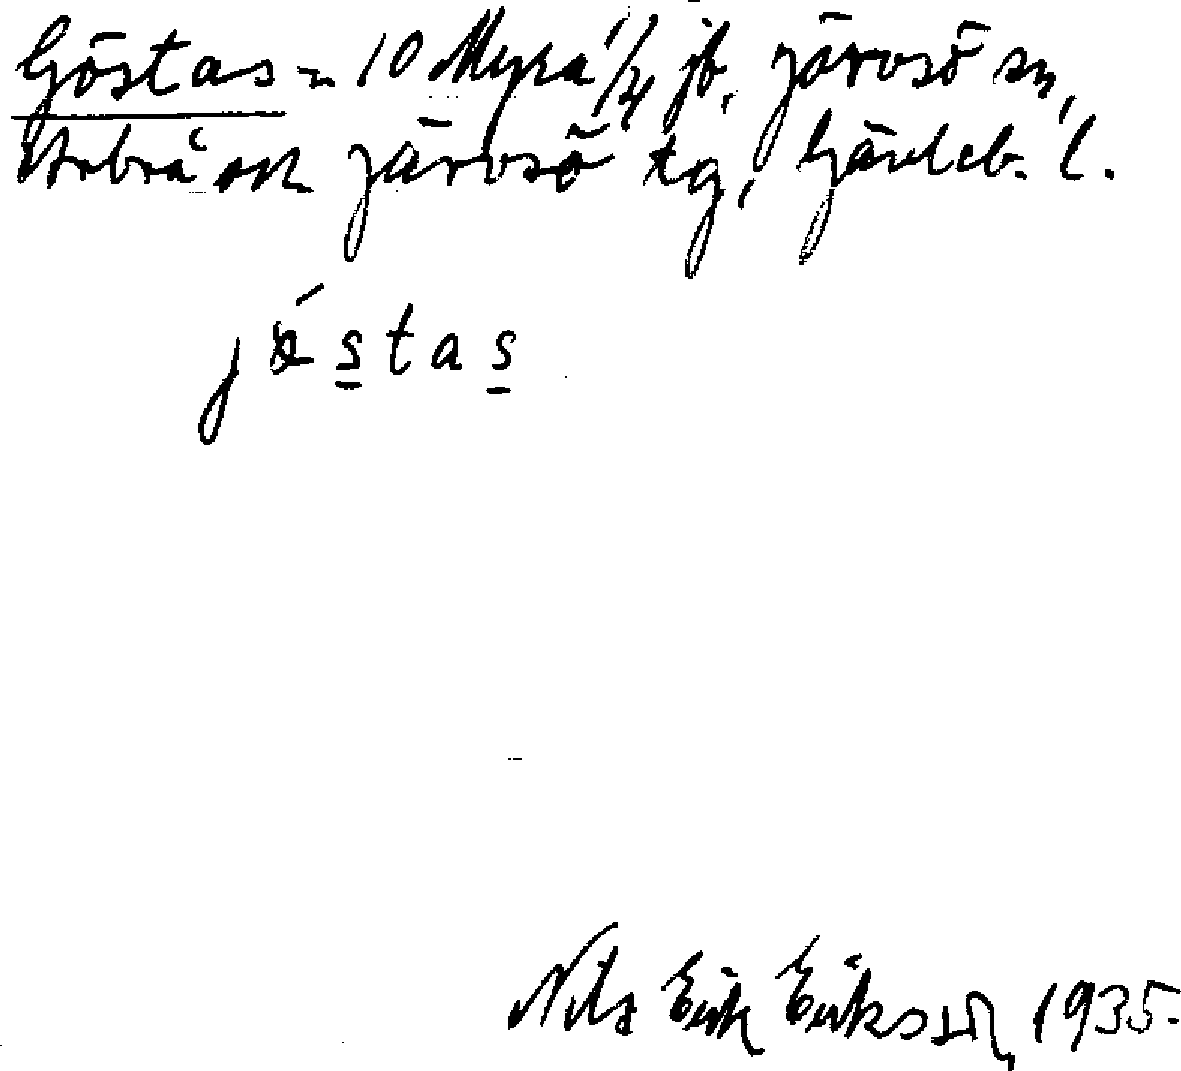 Göstas = 10 Myra 1/4 jb, Järvsö sn,
Arbrå och Järvsö tg, Gävleb. l.
jö́stas
Nils Erik Eriksson, 1935.